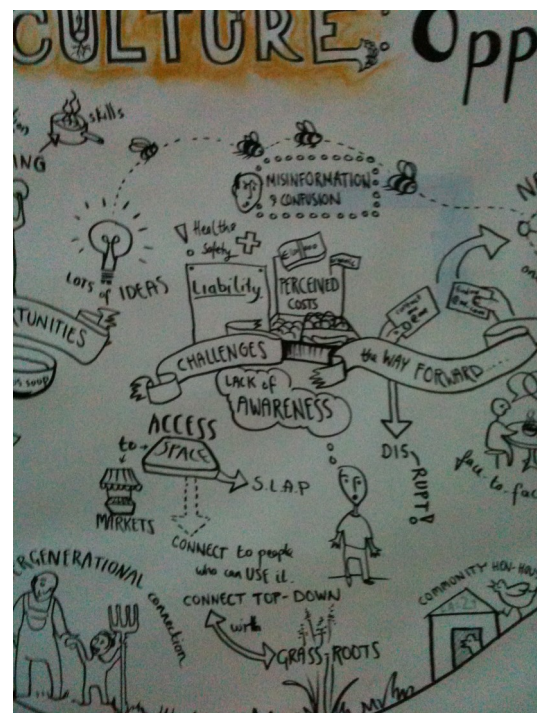 CULTURE: Opp
skills
NG
MISINFORMATION
& CONFUSION
Health &
Safety
LOTS of IDEAS
Liability
PERCEIVED
COSTS
RTUNITIES
CHALLENGES
the WAY FORWARD....
soup
LACK of
AWARENESS
ACCESS
to
SPACE
S.L.A.P
MARKETS
DIS-RUPT!
face-to-fac
CONNECT to people
who can USE it.
CONNECT TOP-DOWN
with
GRASS-ROOTS
ERGENERATIONAL
connection
COMMUNITY HEN-HOU